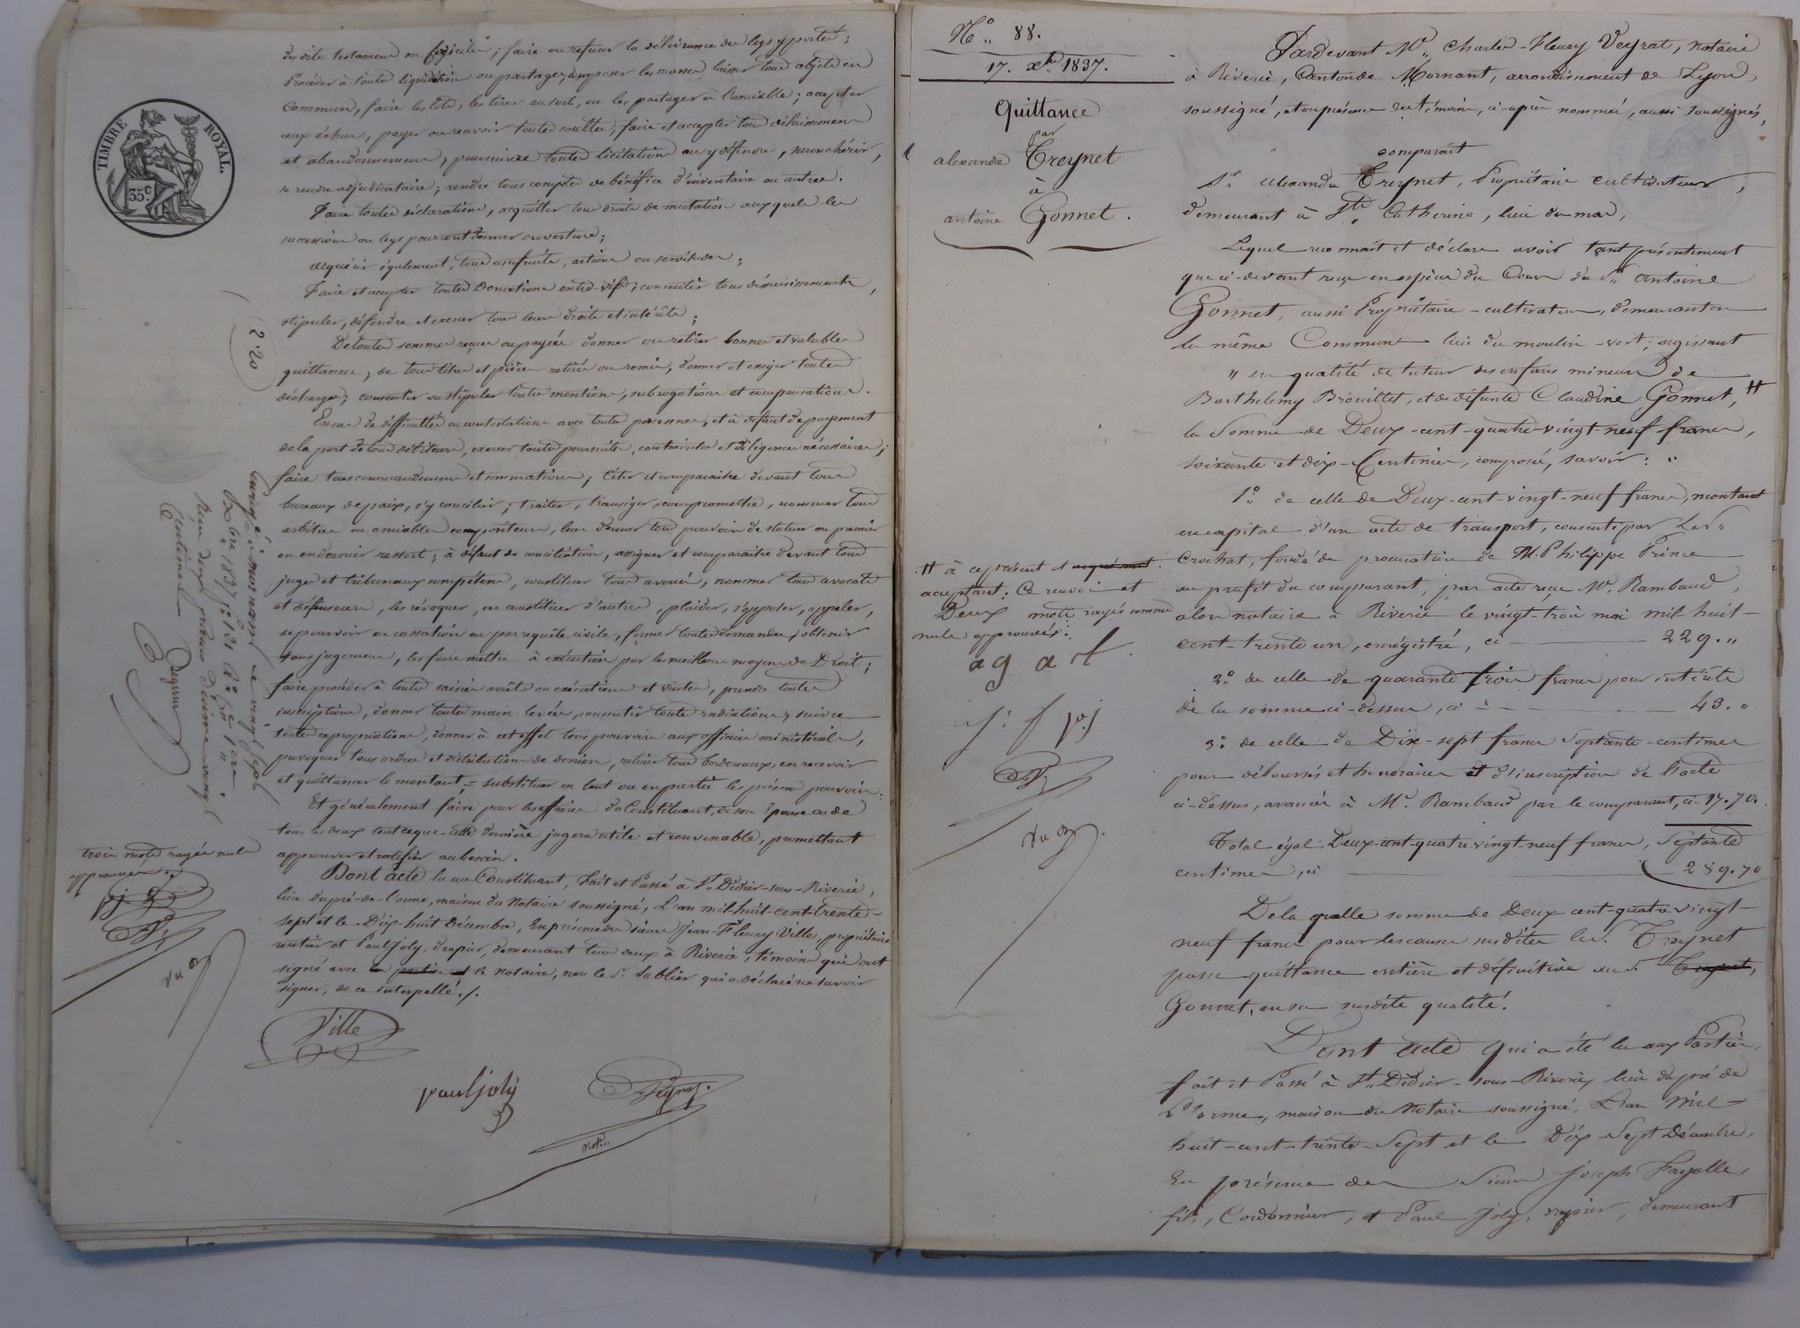 TIMBRE ROYAL.
35c.
des dits testaments ou codiciles; faire ou refuser la délivrance des legs y portés;
Procéder à toutes liquidations ou partages, composer les masses, laisser tous objets en
commun, faire les lots, les tirer au sort, ou les partager à l'amiable; accepter
ceux échus, payer ou recevoir toutes soultes; faire et accepter tous délaissemens
et abandonnemens, poursuivre toutes licitations ou y défendre, surenchérir,
se rendre adjudicataire; rendre tous comptes de bénéfice d'inventaire ou autres.
Faire toutes déclarations, acquitter tous droits de mutation auxquels les
successions ou legs pourront donner ouverture;
acquérir également, tous usufruits, actions ou servitudes;
Faire et accepter toutes Donations entre-vifs; consentir tous dessaisissements,
stipuler, défendre et exercer tous leurs droits et intérêts;
De toutes sommes reçues ou payées donner ou retirer bonnes et valables
quittances; de tous titres et pièces retirés ou remis, donner et exiger toutes
décharges; consentir ou stipuler toutes mentions, subrogations et comparutions.
En cas de difficultés ou contestations avec toutes personnes, et à défaut de payement
de la part de tous débiteurs, exercer toutes poursuites, contraintes et diligences nécessaires;
faire tous commandemens et sommations; citer et comparaître devant tous
bureaux de paix, s'y concilier; traiter, transiger, compromettre, nommer tous
arbitres ou amiables compositeurs, leur donner tous pouvoirs de statuer en premier
ou en dernier ressort; à défaut de conciliation, assigner et comparaître devant tous
juges et tribunaux compétens, constituer tous avoués, nommer tous avocats
et défenseurs, les révoquer, en constituer d'autres, plaider, s'opposer, appeler,
se pourvoir en cassation ou par requête civile, former toutes demandes, obtenir
tous jugemens, les faire mettre à exécution par les meilleurs moyens de Droit;
faire procéder à toutes saisies arrêts ou exécutions et ventes, prendre toutes
inscriptions, donner toutes main-levées, consentir toutes radiations, suivre
toutes expropriations, donner à cet effet tous pouvoirs aux officiers ministériels,
provoquer tous ordres et distributions de deniers, retirer tous bordereaux, en recevoir
et quittancer le montant; substituer en tout ou en partie les présens pouvoirs.
Et généralement faire pour les affaires du Constituant, de son Epouse ou de
tous les deux tout ce que cette dernière jugera utile et convenable, promettant
approuver et ratifier au besoin.
Dont acte lu au Constituant, Fait et Passé à St Didier-sous-Riverie,
lieu du pré-de-l'orme, maison du Notaire soussigné, L'an mil-huit-cent-trente-
sept et le Dix-huit Décembre, En présence de sieurs Jean-Fleury Ville, propriétaire
rentier et Paul Joly, drapier, demeurant tous deux à Riverie, témoins qui ont
signé avec la partie et le Notaire, non le Sr Sablier qui a déclaré ne savoir
signer, de ce interpellé./.
(2.20)
Enregistré à Mornant le vingt sept
Xbre 1837,
Reçu deux francs décime vingt
centimes
trois mots rayés nuls
approuvés
pj
Ville
paul joly
Veyrat
not.
N° 88.
17. Xbre 1837.
Quittance
par
alexandre Treynet
à
antoine Gonnet.
Pardevant Me Charles-Fleury Veyrat, Notaire
à Riverie, Canton de Mornant, arrondissement de Lyon,
soussigné, et en présence des témoins, ci-après nommés, aussi soussignés,
comparaît
Sr alexandre Treynet, Propriétaire cultivateur,
demeurant à Ste Catherine, lieu du mas,
Lequel reconnaît et déclare avoir tant présentement
que ci-devant reçu en espèces du Cours du Sr antoine
Gonnet, aussi Propriétaire-cultivateur, demeurant en
la même Commune lieu du moulin-vert; agissant
" en qualité de tuteur des enfans mineurs de
Barthelemy Brouillet, et de défunte Claudine Gonnet, #
la Somme de Deux-cent-quatre-vingt-neuf francs,
soixante et dix-Centimes, composée, savoir: "
1° de celle de Deux-cent-vingt-neuf francs, montant
en capital d'un acte de transport, consenti par le Sr
Crochat, fondé de procuration de M. Philippe Prince
au profit du comparant, par acte reçu Me Rambaud,
alors notaire à Riverie le vingt-trois mai mil huit-
cent-trente un, enregistré, ci 229. "
2° de celle de quarante trois francs pour intérêts
de la somme ci-dessus, ci 43. "
3° de celle de Dix-sept francs Septante-centimes
pour déboursés et honoraires et d'inscription de l'acte
ci-dessus, avancés à Me Rambaud par le comparant, ci 17.70.
Total égal Deux-cent-quatre vingt neuf francs, Septante
centimes, ci 289.70
De la quelle somme de Deux cent-quatre vingt-
neuf francs pour les causes susdites le Sr Treynet
passe quittance entière et définitive au Sr Treynet,
Gonnet, en sa susdite qualité.
Dont acte qui a été lu aux Parties,
fait et Passé à St Didier-sous-Riverie, lieu du pré de
l'orme, maison du Notaire soussigné, L'an Mil-
huit-cent-trente-Sept et le Dix-Sept Décembre,
En présence de Sieurs Joseph Fayolle,
fils, Cordonnier, et Paul Joly, drapier, demeurant
# à ce présent et acquérant
acceptant; Ce renvoi et
Deux mots rayés comme
nuls approuvés:
ag a t
j. f pj